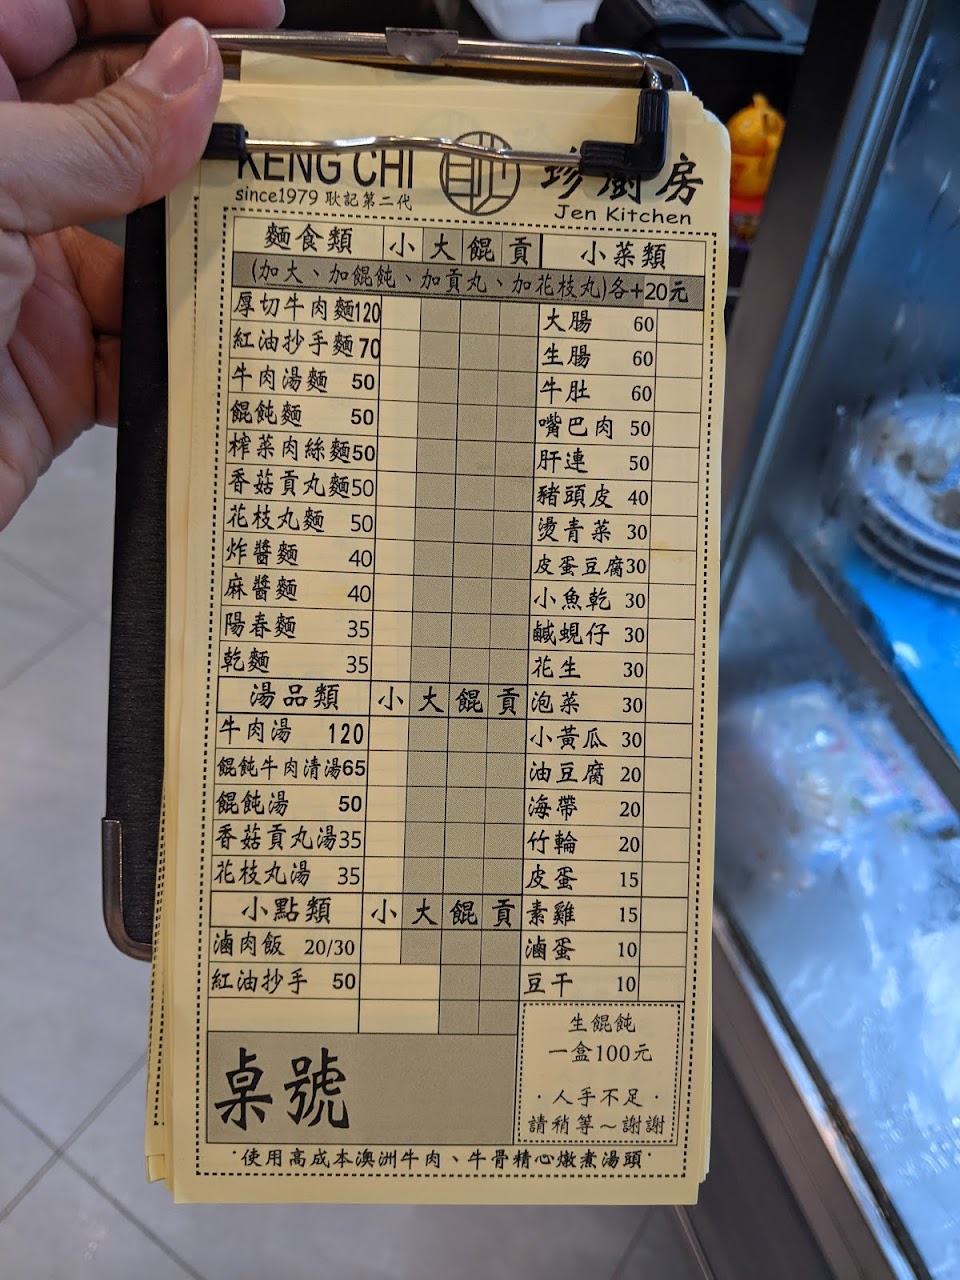 KENG CHI
since1979 耿記第二代
珍廚房
Jen Kitchen
麵食類 小 大 餛 貢
(加大、加餛飩、加貢丸、加花枝丸)各+20元
厚切牛肉麵120
紅油抄手麵70
牛肉湯麵 50
餛飩麵 50
榨菜肉絲麵50
香菇貢丸麵50
花枝丸麵 50
炸醬麵 40
麻醬麵 40
陽春麵 35
乾麵 35
湯品類 小 大 餛 貢
牛肉湯 120
餛飩牛肉清湯65
餛飩湯 50
香菇貢丸湯35
花枝丸湯 35
小點類 小 大 餛 貢
滷肉飯 20/30
紅油抄手 50
桌號
小菜類
大腸 60
生腸 60
牛肚 60
嘴巴肉 50
肝連 50
豬頭皮 40
燙青菜 30
皮蛋豆腐30
小魚乾 30
鹹蜆仔 30
花生 30
泡菜 30
小黃瓜 30
油豆腐 20
海帶 20
竹輪 20
皮蛋 15
素雞 15
滷蛋 10
豆干 10
生餛飩
一盒100元
·人手不足·
請稍等~謝謝
·使用高成本澳洲牛肉、牛骨精心燉煮湯頭·